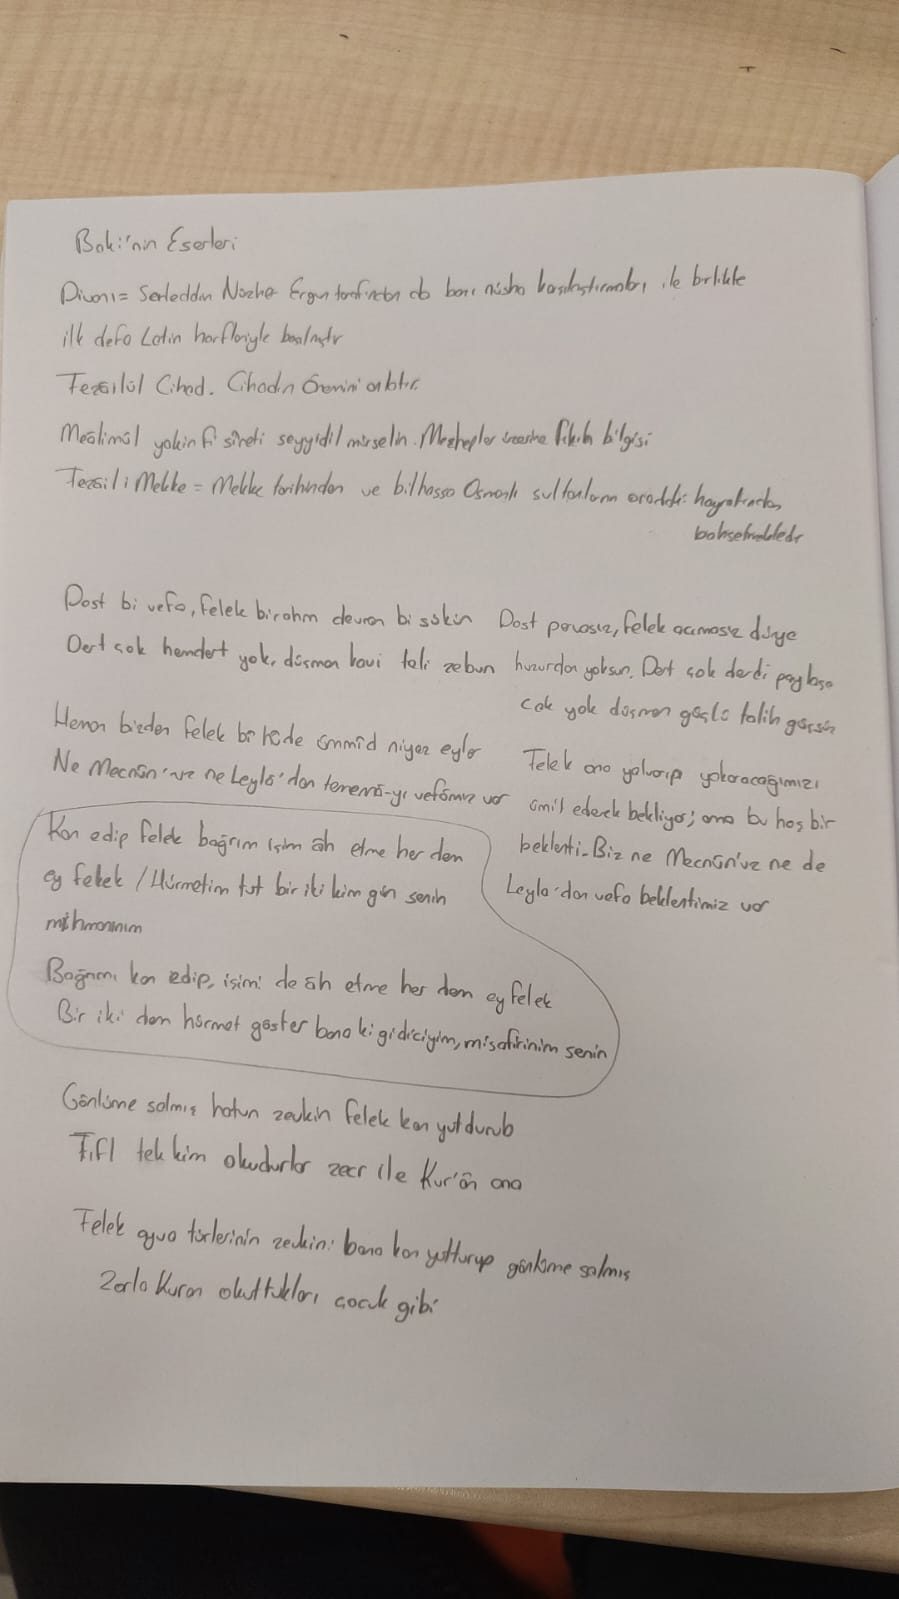 Baki'nin Eserleri
Divanı = Sadeddin Nüzhe Ergun tarafından da bazı nüsha karşılaştırmaları ile birlikte
ilk defa Latin harfleriyle basılmıştır
Fezailül Cihad. Cihadın önemini anlatır.
Mealimül yakin fi sîreti seyyidil mürselin. Mezhepler üzerine fıkıh bilgisi
Fezail i Mekke = Mekke tarihinden ve bilhassa Osmanlı sultanların oradaki hayratından
bahsetmektedir
Dost bi vefa, felek birahm devran bi sükün
Dert çok hemdert yok, düşman kavi tali zebun
Dost pervasız, felek acımasız dünya
huzurdan yoksun. Dert çok derdi paylaşa
cak yok düşman güçlü talih güçsüz
Heman bizden felek bi hûde ümmîd niyaz eyler
Ne Mecnûn'uz ne Leylâ'dan temennâ-yı vefâmız var
Felek ona yalvarıp yakaracağımızı
ümit ederek bekliyor; ama bu boş bir
beklenti. Biz ne Mecnûn'uz ne de
Leyla'dan vefa beklentimiz var
Kan edip felek bağrım işim âh etme her dem
ey felek / Hürmetim tut bir iki kim gün senin
mihmanınım
Bağrımı kan edip, işimi de âh etme her dem ey felek
Bir iki dem hürmet göster bana ki gidiciyim, misafirinim senin
Gönlüme salmış hatun zevkin felek kan yutdurub
Tıfl tek kim okudurlar zecr ile Kur'ân ona
Felek ayva türlerinin zevkini bana kan yutturup gönlüme salmış
Zorla Kuran okuttukları çocuk gibi